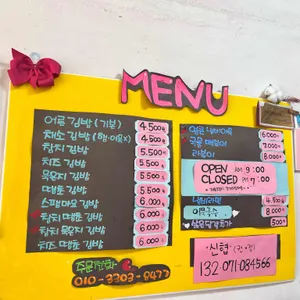 MENU
어류 김밥 (기본) 4.500
채소 김밥 4.500
참치 김밥 5.500
치즈 김밥 5.500
묵은지 김밥 5.500
땡초 김밥 5.500
스팸마요 김밥 6.000
참치 땡초 김밥 6.000
참치 묵은지 김밥 6.000
치즈 땡초 김밥 6.000
주문전화
010-3303-8477
6.000
7.000
라볶이 8.000
OPEN AM 9:00
CLOSED PM 7:00
4.500
8.000
500
신협
132 071 084566